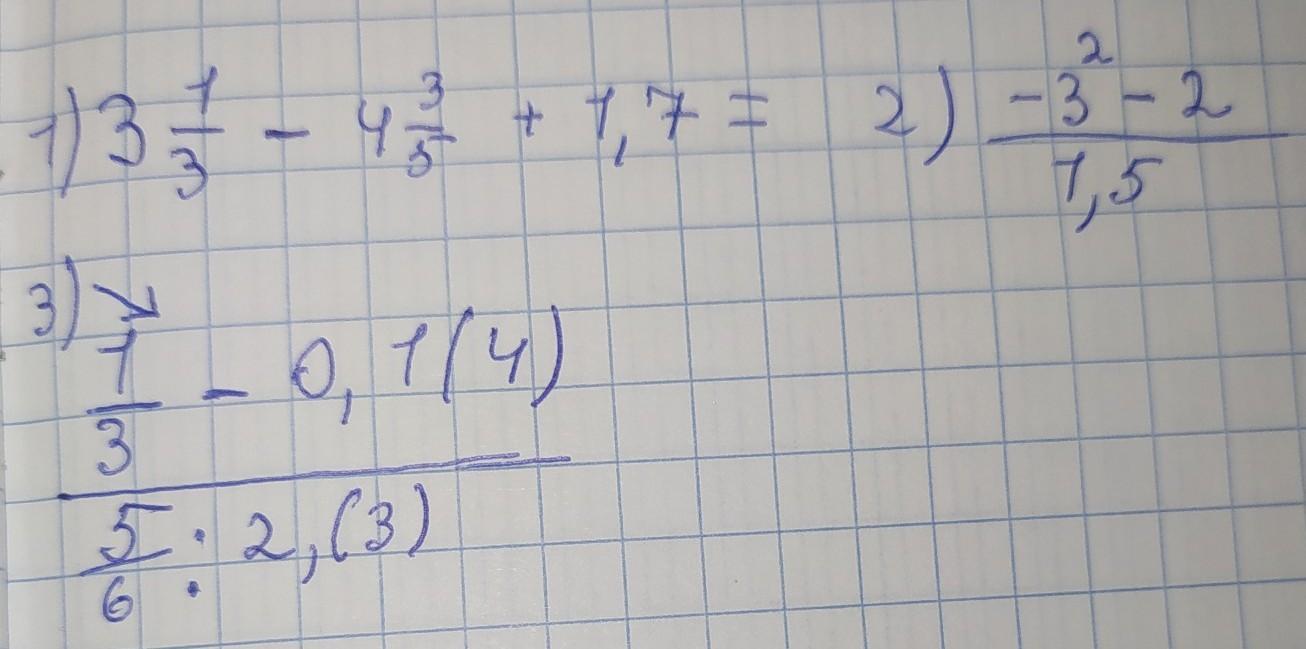 1) 3 1/3 - 4 3/5 + 1,7 = 2) (-3² - 2)/1,5
3) (1/3 - 0,1(4))/(5/6 : 2,(3))